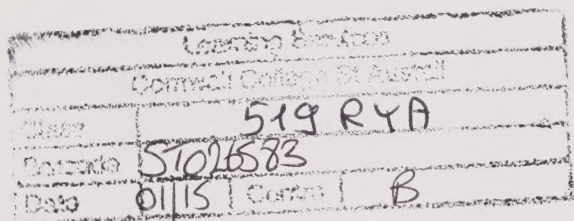 Learning Services
Cornwall College St Austell
Class 519 RYA
Barcode ST026583
Date 01/15 Centre B